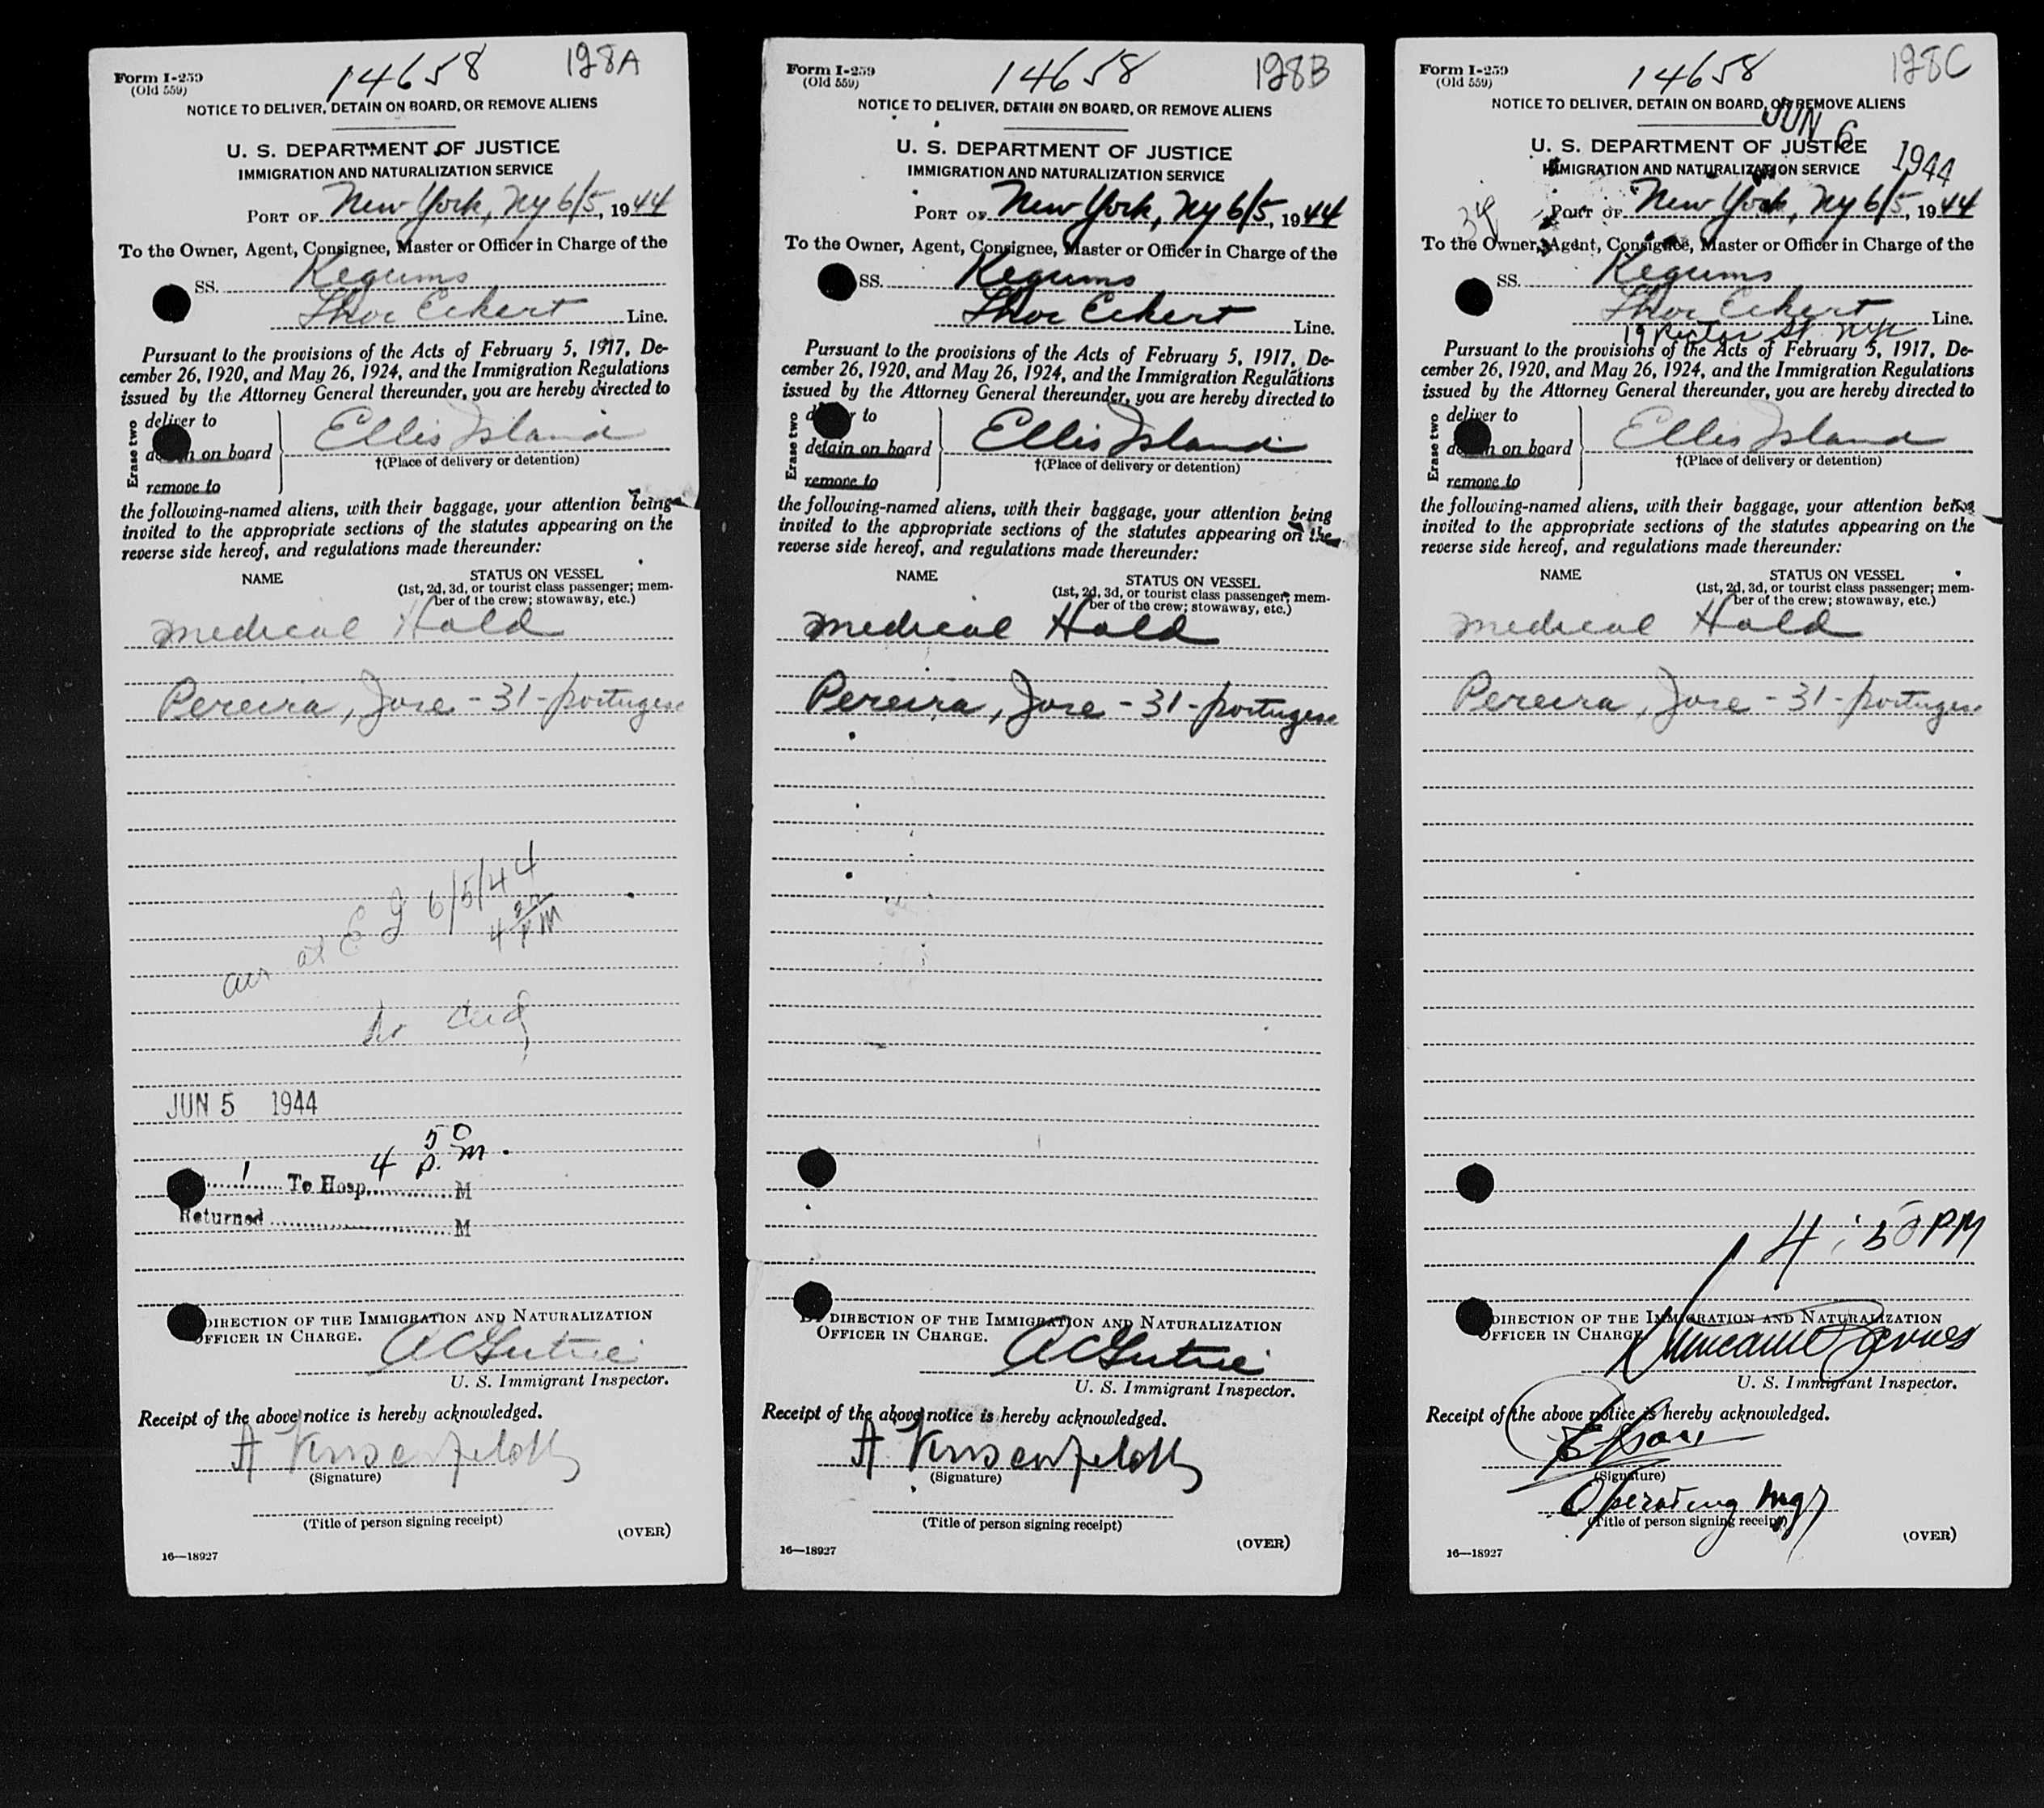 Form I-259
(Old 559)
14658
128A
NOTICE TO DELIVER, DETAIN ON BOARD, OR REMOVE ALIENS
U. S. DEPARTMENT OF JUSTICE
IMMIGRATION AND NATURALIZATION SERVICE
PORT OF New York, Ny 6/5, 1944
To the Owner, Agent, Consignee, Master or Officer in Charge of the
SS. Kegums
Thor Eckert Line.
Pursuant to the provisions of the Acts of February 5, 1917, De-
cember 26, 1920, and May 26, 1924, and the Immigration Regulations
issued by the Attorney General thereunder, you are hereby directed to
Erase two
deliver to
detain on board
remove to
Ellis Island
†(Place of delivery or detention)
the following-named aliens, with their baggage, your attention being
invited to the appropriate sections of the statutes appearing on the
reverse side hereof, and regulations made thereunder:
NAME
STATUS ON VESSEL
(1st, 2d, 3d, or tourist class passenger; mem-
ber of the crew; stowaway, etc.)
Medical Hold
Pereira, Jose - 31 - portugese
arr at E I 6/5/44
4 PM
JUN 5 1944
4 50 P.M.
1 To Hosp. M
Returned M
DIRECTION OF THE IMMIGRATION AND NATURALIZATION
OFFICER IN CHARGE.
U. S. Immigrant Inspector.
Receipt of the above notice is hereby acknowledged.
(Signature)
(Title of person signing receipt)
(OVER)
16—18927
Form I-259
(Old 559)
14658
128B
NOTICE TO DELIVER, DETAIN ON BOARD, OR REMOVE ALIENS
U. S. DEPARTMENT OF JUSTICE
IMMIGRATION AND NATURALIZATION SERVICE
PORT OF New York, Ny 6/5, 1944
To the Owner, Agent, Consignee, Master or Officer in Charge of the
SS. Kegums
Thor Eckert Line.
Pursuant to the provisions of the Acts of February 5, 1917, De-
cember 26, 1920, and May 26, 1924, and the Immigration Regulations
issued by the Attorney General thereunder, you are hereby directed to
Erase two
deliver to
detain on board
remove to
Ellis Island
†(Place of delivery or detention)
the following-named aliens, with their baggage, your attention being
invited to the appropriate sections of the statutes appearing on the
reverse side hereof, and regulations made thereunder:
NAME
STATUS ON VESSEL
(1st, 2d, 3d, or tourist class passenger; mem-
ber of the crew; stowaway, etc.)
Medical Hold
Pereira, Jose - 31 - portugese
BY DIRECTION OF THE IMMIGRATION AND NATURALIZATION
OFFICER IN CHARGE.
U. S. Immigrant Inspector.
Receipt of the above notice is hereby acknowledged.
(Signature)
(Title of person signing receipt)
(OVER)
16—18927
Form I-259
(Old 559)
14658
128C
NOTICE TO DELIVER, DETAIN ON BOARD, OR REMOVE ALIENS
JUN 6 1944
U. S. DEPARTMENT OF JUSTICE
IMMIGRATION AND NATURALIZATION SERVICE
PORT OF New York, Ny 6/5, 1944
To the Owner, Agent, Consignee, Master or Officer in Charge of the
SS. Kegums
Thor Eckert Line.
19 Rector St
Pursuant to the provisions of the Acts of February 5, 1917, De-
cember 26, 1920, and May 26, 1924, and the Immigration Regulations
issued by the Attorney General thereunder, you are hereby directed to
Erase two
deliver to
detain on board
remove to
Ellis Island
†(Place of delivery or detention)
the following-named aliens, with their baggage, your attention being
invited to the appropriate sections of the statutes appearing on the
reverse side hereof, and regulations made thereunder:
NAME
STATUS ON VESSEL
(1st, 2d, 3d, or tourist class passenger; mem-
ber of the crew; stowaway, etc.)
Medical Hold
Pereira, Jose - 31 - portugese
4:50 PM
DIRECTION OF THE IMMIGRATION AND NATURALIZATION
OFFICER IN CHARGE.
U. S. Immigrant Inspector.
Receipt of the above notice is hereby acknowledged.
(Signature)
Operating Mgr
(Title of person signing receipt)
(OVER)
16—18927